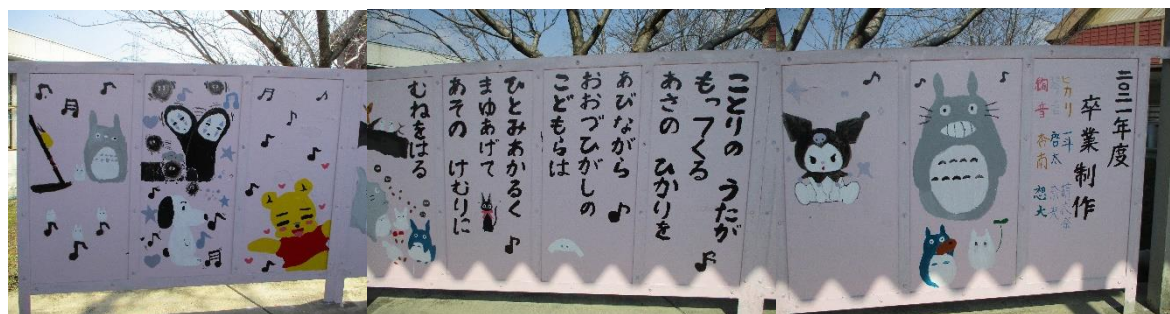 二〇二一年度
卒業制作
ことりの　うたが
もってくる
あさの　ひかりを
あびながら
おおづひがしの
こどもらは
ひとみあかるく
まゆあげて
あその　けむりに
むねをはる